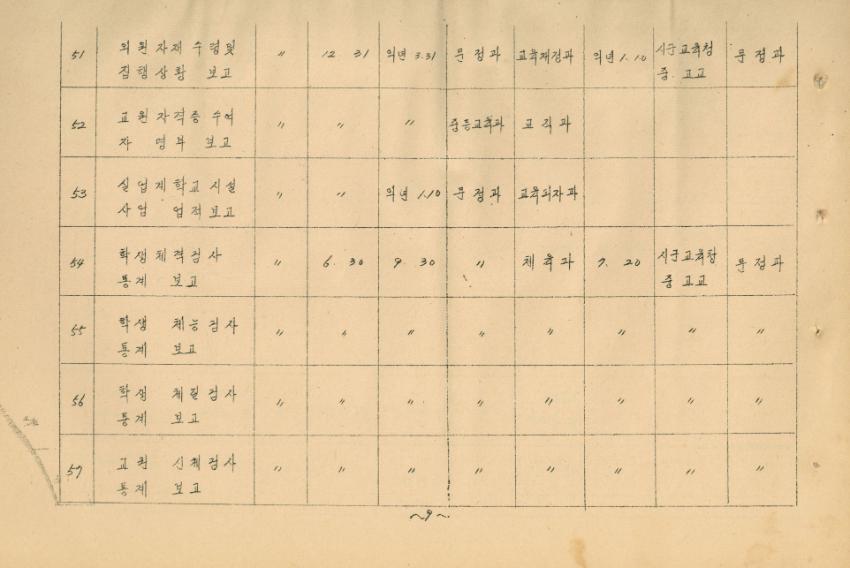 51 의원자재 수령및 〃 12. 31 익년 3.31 문정과 교육재정과 익년 1.10 시군교육청 문정과
집행상황 보고 중 고교
52 교원자격증수여 〃 〃 〃 중등교육과 교직과
자 명부 보고
53 실업계학교시설 〃 〃 익년 1.10 문정과
사업 업적보고
54 학생체격검사 〃 6. 30 9. 30 〃 체육과 7. 20 시군교육청 문정과
통계 보고 중 고교
55 학생 체능검사 〃 〃 〃 〃 〃 〃 〃 〃
통계 보고
56 학생 체질검사 〃 〃 〃 〃 〃 〃 〃 〃
통계 보고
57 교원 신체검사 〃 〃 〃 〃 〃 〃 〃 〃
통계 보고
~9~